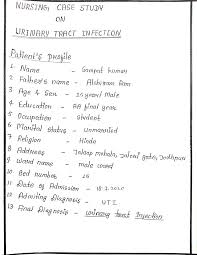 NURSING CASE STUDY
ON
URINARY TRACT INFECTION
Patient's profile
1 Name - Ganpat kumar
2 Father's name - Abhiman Ram
3 Age & Sex - 25 year/ Male
4 Education - BA final year
5 Occupation - Student
6 Marital Status - unmarried
7 Religion - Hindu
8 Address - mohala, gate, Jodhpur
9 Ward name - male
10 Bed number - 16
11 Date of Admission - 18.1.2020
12 Admitting Diagnosis - UTI
13 Final Diagnosis - urinary tract Infection